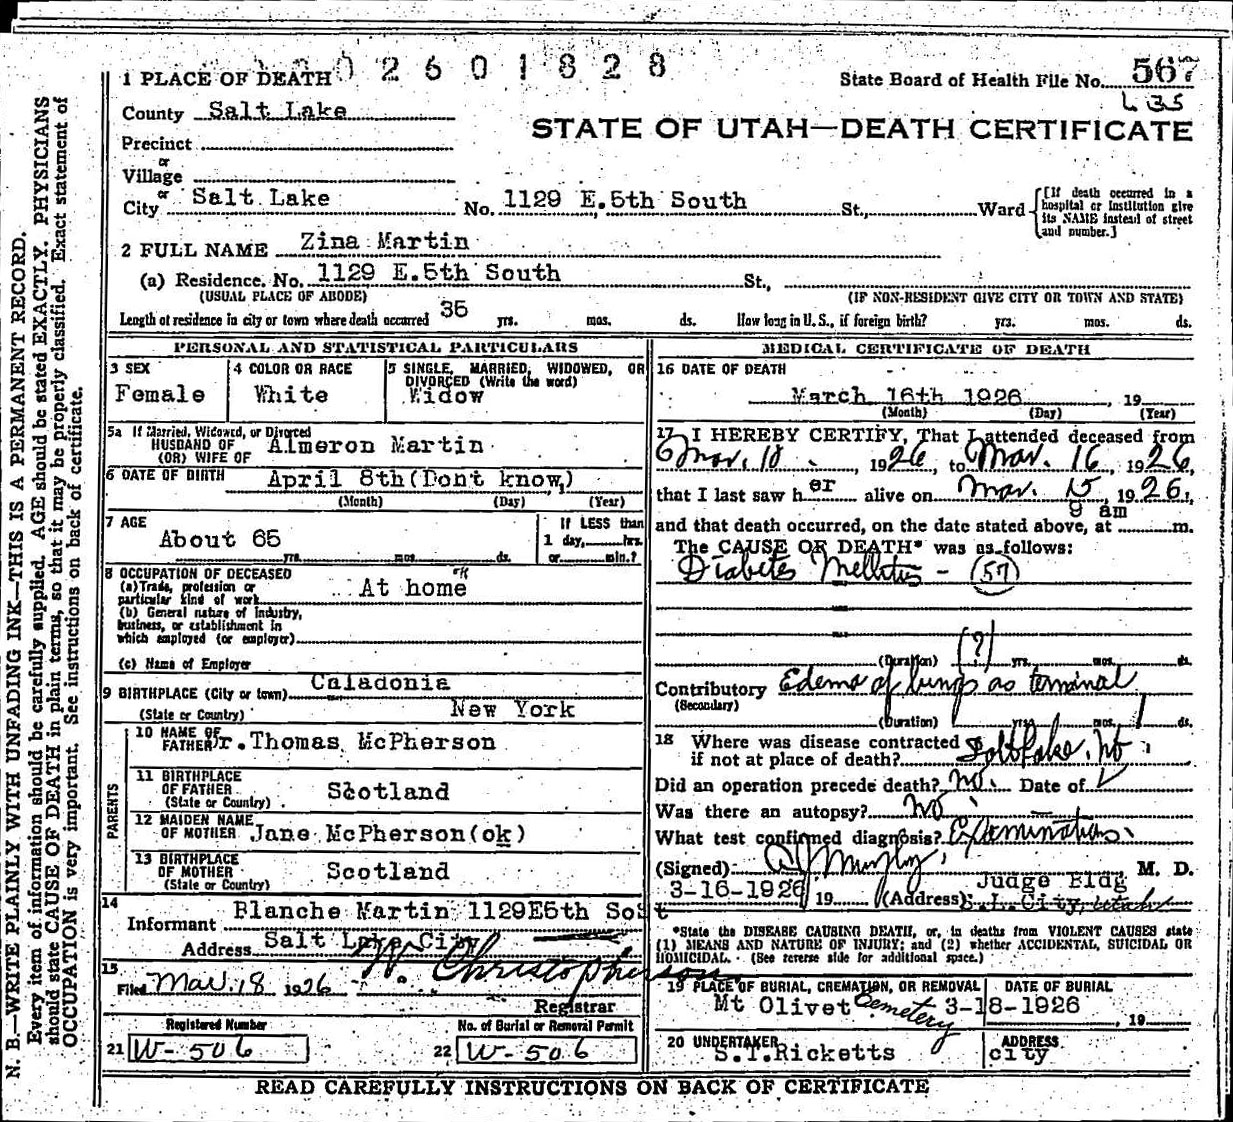 02601828
1 PLACE OF DEATH
State Board of Health File No. 567
L 35
County Salt Lake
STATE OF UTAH—DEATH CERTIFICATE
Precinct
or
Village
or
City Salt Lake No. 1129 E.5th South St., Ward
[If death occurred in a hospital or institution give its NAME instead of street and number.]
2 FULL NAME Zina Martin
(a) Residence. No. 1129 E.5th South St.,
(USUAL PLACE OF ABODE) (IF NON-RESIDENT GIVE CITY OR TOWN AND STATE)
Length of residence in city or town where death occurred 35 yrs. mos. ds. How long in U. S., if foreign birth? yrs. mos. ds.
PERSONAL AND STATISTICAL PARTICULARS
3 SEX
Female
4 COLOR OR RACE
White
5 SINGLE, MARRIED, WIDOWED, OR
DIVORCED (Write the word)
Widow
5a If Married, Widowed, or Divorced
HUSBAND OF
(OR) WIFE OF Almeron Martin
6 DATE OF BIRTH April 8th(Dont know,)
(Month) (Day) (Year)
7 AGE
About 65
yrs. mos. ds.
If LESS than
1 day, hrs.
or min.?
8 OCCUPATION OF DECEASED
(a) Trade, profession or
particular kind of work At home
(b) General nature of Industry,
business, or establishment in
which employed (or employer)
(c) Name of Employer
9 BIRTHPLACE (City or town) Caladonia
(State or Country) New York
PARENTS
10 NAME OF
FATHER Dr. Thomas McPherson
11 BIRTHPLACE
OF FATHER
(State or Country) Scotland
12 MAIDEN NAME
OF MOTHER Jane McPherson(ok)
13 BIRTHPLACE
OF MOTHER
(State or Country) Scotland
14
Informant Blanche Martin 1129E5th So St
Address Salt Lake City
15
Filed Mar. 18 1926 W. Christopherson
Registrar
Registered Number
21 W-506
No. of Burial or Removal Permit
22 W-506
MEDICAL CERTIFICATE OF DEATH
16 DATE OF DEATH
March 16th 1926, 19
(Month) (Day) (Year)
17 I HEREBY CERTIFY, That I attended deceased from
Mar. 18, 1926, to Mar. 16, 1926,
that I last saw her alive on Mar. 15, 1926,
and that death occurred, on the date stated above, at 9 am m.
The CAUSE OF DEATH* was as follows:
Diabetes Mellitus - (57)
(Duration) (?) yrs. mos. ds.
Contributory Edema of lungs as terminal
(Secondary)
(Duration) yrs. mos. 1 ds.
18 Where was disease contracted
if not at place of death? Salt Lake, Ut
Did an operation precede death? No. Date of
Was there an autopsy? No
What test confirmed diagnosis? Examinations.
(Signed) Murphy, M. D.
3-16-1926, 19 (Address) Judge Bldg
S.L.City, Utah
*State the DISEASE CAUSING DEATH, or, in deaths from VIOLENT CAUSES state
(1) MEANS AND NATURE OF INJURY; and (2) whether ACCIDENTAL, SUICIDAL OR
HOMICIDAL. (See reverse side for additional space.)
19 PLACE OF BURIAL, CREMATION, OR REMOVAL
Mt Olivet Cemetery
DATE OF BURIAL
3-18-1926, 19
20 UNDERTAKER
S.T.Ricketts
ADDRESS
city
READ CAREFULLY INSTRUCTIONS ON BACK OF CERTIFICATE
N. B.—WRITE PLAINLY WITH UNFADING INK—THIS IS A PERMANENT RECORD.
Every item of information should be carefully supplied. AGE should be stated EXACTLY. PHYSICIANS
should state CAUSE OF DEATH in plain terms, so that it may be properly classified. Exact statement of
OCCUPATION is very important. See instructions on back of certificate.